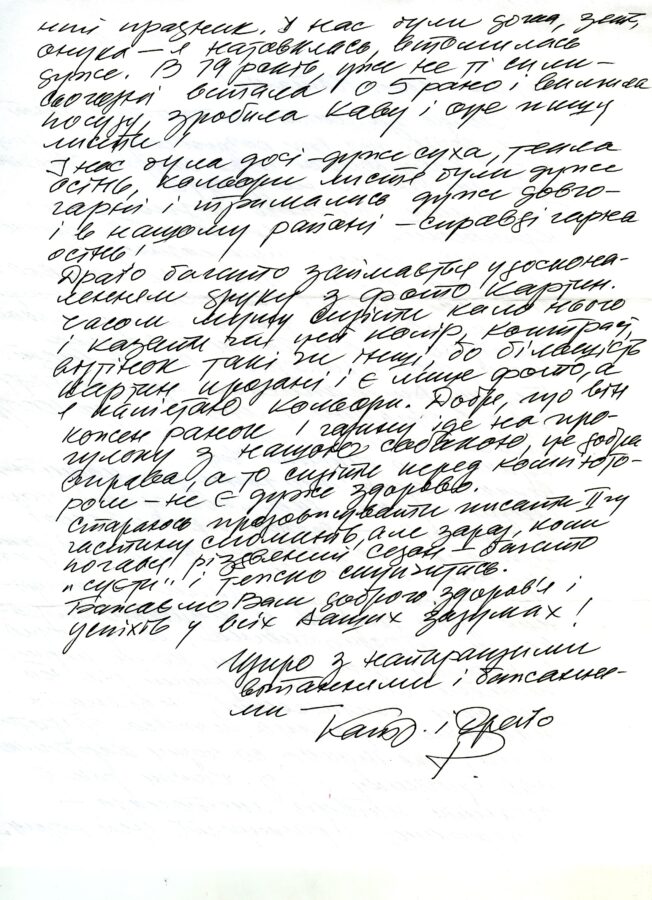 ний празник. У нас були дочка, зять,
онука — я натовклась, втомилась
дуже. В 79 років, уже не ті сили —
сьогодні встала о 5 рано і вимила
посуду, зробила каву і оце пишу
листи!
У нас була досі — дуже суха, тепла
осінь, кольори листя були дуже
гарні і трималась дуже довго —
і в нашому районі — справді гарна
осінь!
Драґо багато займається удоскона-
ленням друку з фото картин.
Часом мушу сидіти коло нього
і казати чи цей колір, контраст,
відтінок такі чи інші, бо більшість
картин продані і є лише фото, а
я памʼятаю кольори. Добре, що він
кожен ранок 1 годину іде на про-
гулюку з нашою собакою, це добра
справа, а то сидіти перед компʼюто-
ром — не є дуже здорово.
Стараюсь продовжувати писати II-гу
частину споминів, але зараз, коли
почався різдвяний сезон — багато
"суєти" і тяжко скупчитись.
Бажаємо Вам доброго здоровʼя і
успіхів у всіх Ваших задумах!
Щиро з найкращими
вітаннями і бажання-
ми —
і Драґо